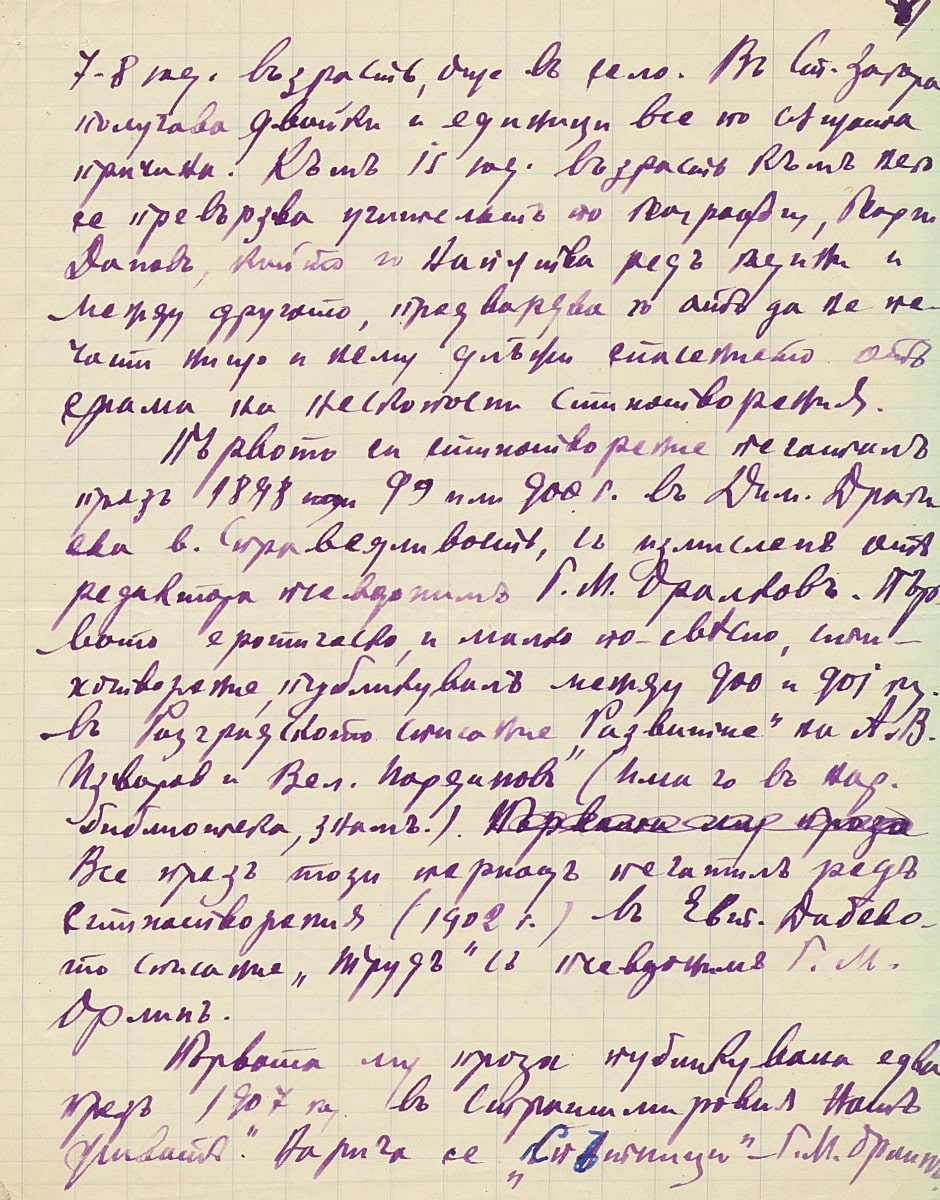 7-8 год. възрасть, още въ село. Въ Ст. Загора
получава двойки и единици все по същата
причина. Къмъ 15 год. възрасть къмъ него
се превързва учительтъ по География, Георги
който го напѫтва редъ години и
между другото, предвардва го отъ да не пе-
чати нищо и нему дължи спасението отъ
срама на несполости стихотворения.
Първото си стихотворение печаталъ
презъ 1898 или 99 или 900 г. въ Дим. Драги
ева в. Справедливость, съ измисленъ отъ
редактора псевдонимъ Г. М. Оралковъ. Пър-
вото еротическо, и малко по-свѣсно, сти-
хотворение, публикувалъ между 900 и 901 год.
въ Разградското списание „Развитие" на А. В.
и Вел. Йордановъ (Има го въ Нар.
библиотека, знамъ.). Първата му проза
Все презъ този периодъ печатилъ редъ
стихотворения (1902 г.) въ Евт. Дабево-
то списание „Трудъ" съ псевдонимъ Г. М.
Орлинъ.
Първата му проза публикувана едва
презъ 1907 год. въ Страшимировия Нашъ
животъ". Нарича се „Слѣпници" – Г. М. Орлинъ.